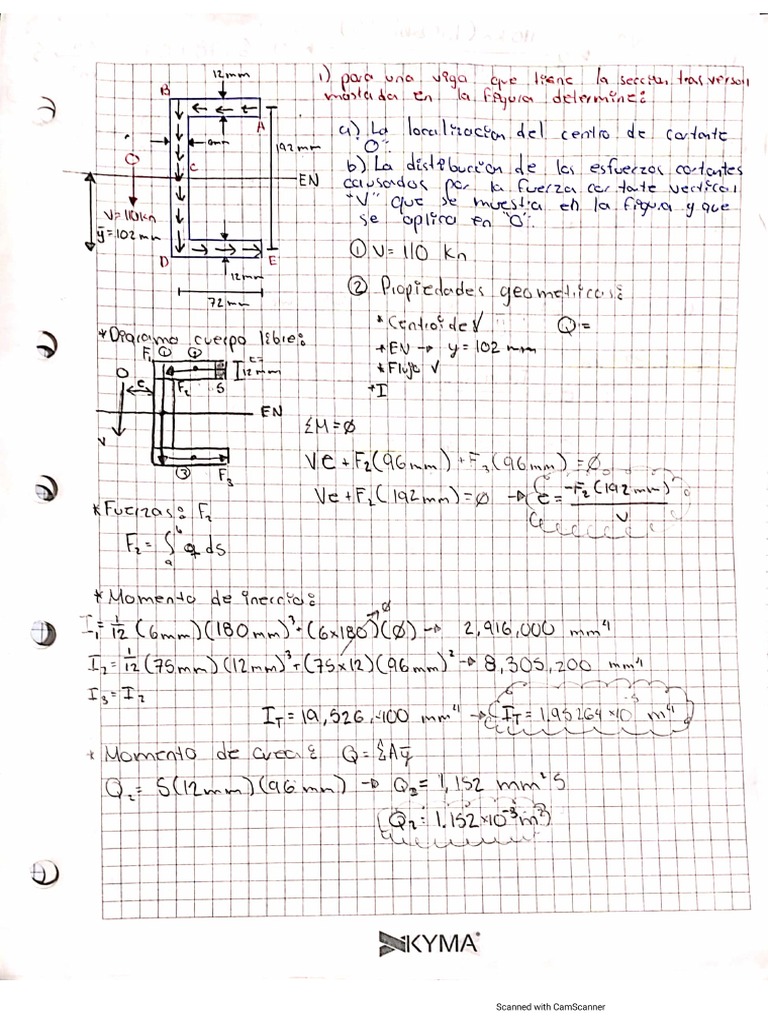 12mm
B
A
192mm
6mm
C
EN
O
V=110kn
ȳ=102mm
D
E
12mm
72mm
1) para una viga que tiene la sección trasversal
mostrada en la figura determine:
a) La localizacion del centro de cortante
"O".
b) La distribucion de los esfuerzos cortantes
causados por la fuerza cortante vertical
"V" que se muestra en la figura y que
se aplica en "O".
① V= 110 Kn
② Propiedades geometricas:
*Centroide √ Q=
*EN → y = 102 mm
*Flujo √
*I
*Diagrama cuerpo libre:
F₁ ① ②
O
e
F₂ S
t=
12mm
EN
V
③ F₃
ΣM=∅
Ve + F₂(96mm) + F₃(96mm) =∅
Ve + F₂(192mm) =∅ → e = -F₂(192mm)/V
*Fuerzas: F₂
F₂=∫ₐᵇ q ds
*Momento de inercia:
I₁= 1/12 (6mm)(180mm)³+(6x180)(∅) → 2,916,000 mm⁴
I₂= 1/12 (75mm)(12mm)³+(75x12)(96mm)² → 8,305,200 mm⁴
I₃=I₂
I_T = 19,526,400 mm⁴ → I_T = 1.95264x10⁻⁵ m⁴
* Momento de area: Q=ΣAȳ
Q₂= S(12mm)(96mm) → Q₂= 1,152 mm²S
Q₂= 1.152x10⁻³m²
KYMA
Scanned with CamScanner